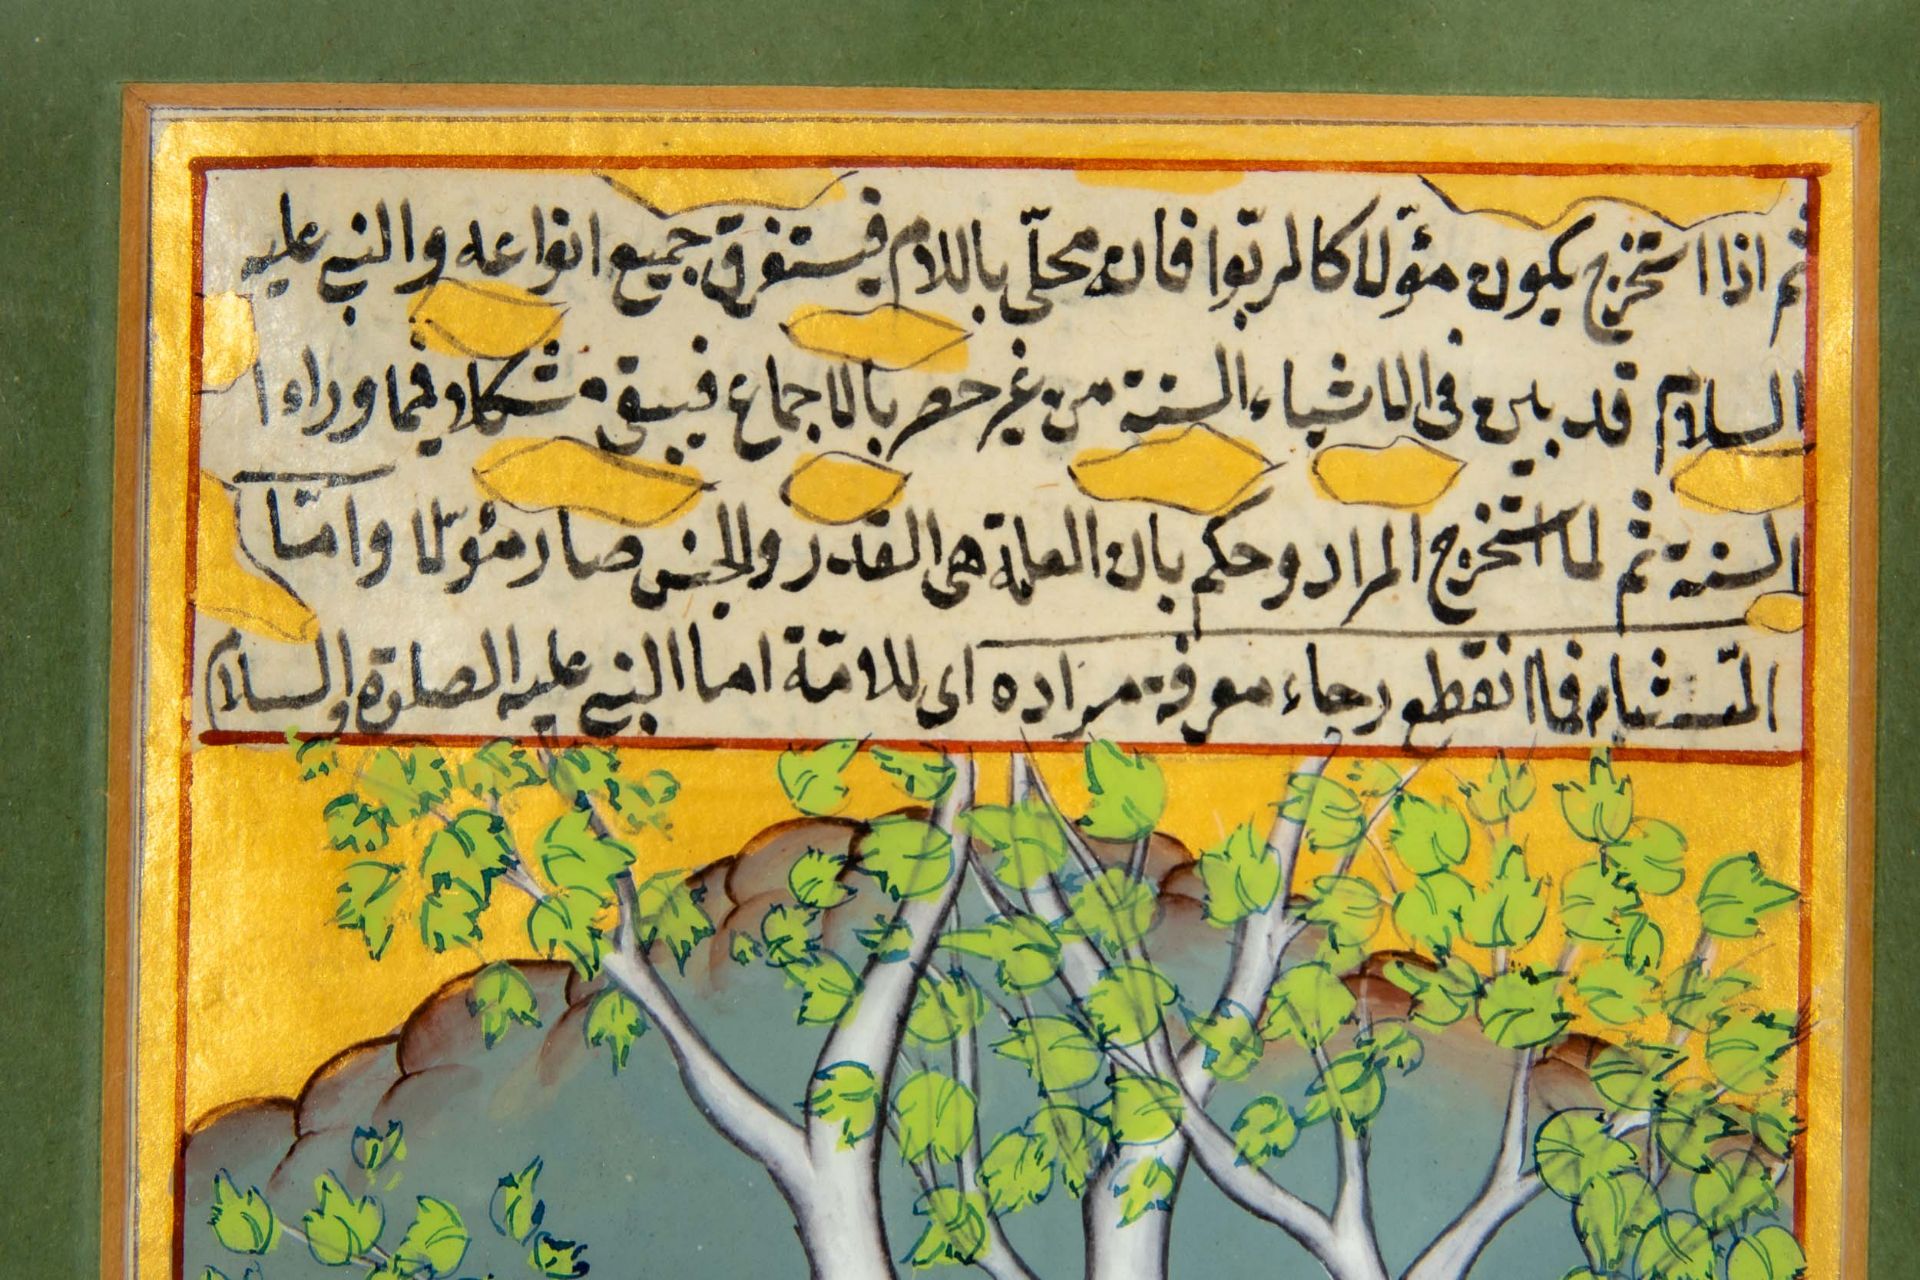 ثم اذا استخرج يكون مؤلا كالربوا فانه محلّى باللام فيستغرق جميع انواعه والنبي عليه
السلام قد بين في الاشياء الستة من غير حصر بالاجماع فيبقى مشكلا فيما وراء ا
الستة ثم لما استخرج المراد وحكم بان العلة هى القدر والجنس صار مؤلا واما
المتشابه فما انقطع رجاء معرفة مراده اى للامّة اما النبي عليه الصلوة والسلام